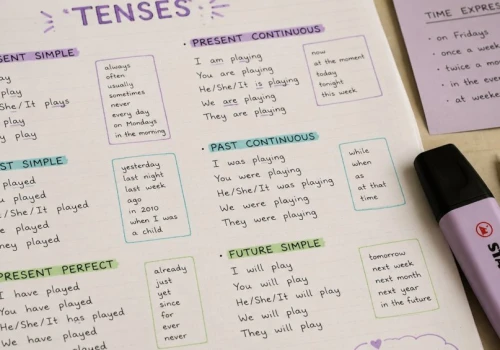 TENSES
ESENT SIMPLE
ay
play
She/It plays
play
y play
always
often
usually
sometimes
never
every day
on Mondays
in the morning
PRESENT CONTINUOUS
I am playing
You are playing
He/She/It is playing
We are playing
They are playing
now
at the moment
today
tonight
this week
ST SIMPLE
played
u played
/She/It played
e played
ney played
yesterday
last night
last week
ago
in 2010
when I was
a child
PAST CONTINUOUS
I was playing
You were playing
He/She/It was playing
We were playing
They were playing
while
when
as
at that
time
PRESENT PERFECT
I have played
You have played
He/She/It has played
We have played
already
just
yet
since
for
ever
never
FUTURE SIMPLE
I will play
You will play
He/She/It will play
We will play
They will play
tomorrow
next week
next month
next year
in the future
TIME EXPRES
on Fridays
once a week
twice a mo
in the even
at weeke